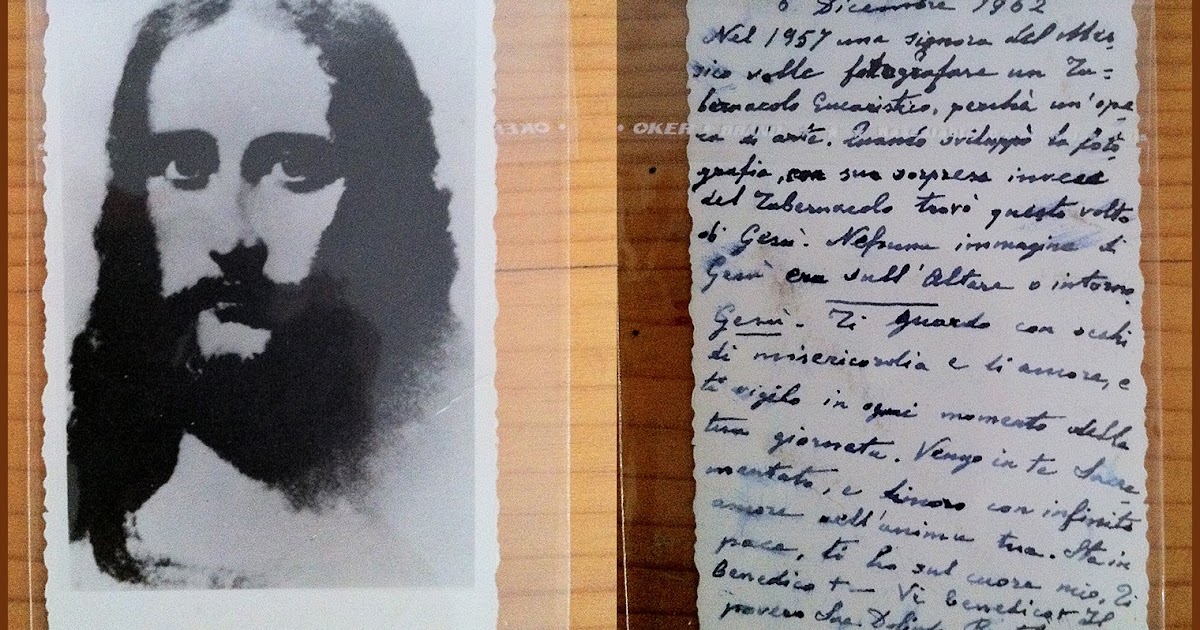 6 Dicembre 1962
Nel 1957 una signora del Mes-
sico volle fotografare un Ta=
bernacolo Eucaristico, perchè un'ope
ra di arte. Quando sviluppò la foto
grafia, con sua sorpresa invece
del Tabernacolo trovò questo volto
di Gesù. Nessuna immagine di
Gesù era sull'Altare o intorno.
Gesù. Ti guardo con occhi
di misericordia e di amore, e
ti vigilo in ogni momento della
tua giornata. Vengo in te Sacra
mentato, e dimoro con infinito
amore nell'anima tua. Sta in
pace, ti ho sul cuore mio. Ti
Benedico + Vi benedico + Il
povero Sac. Dolindo
OKER
OKER